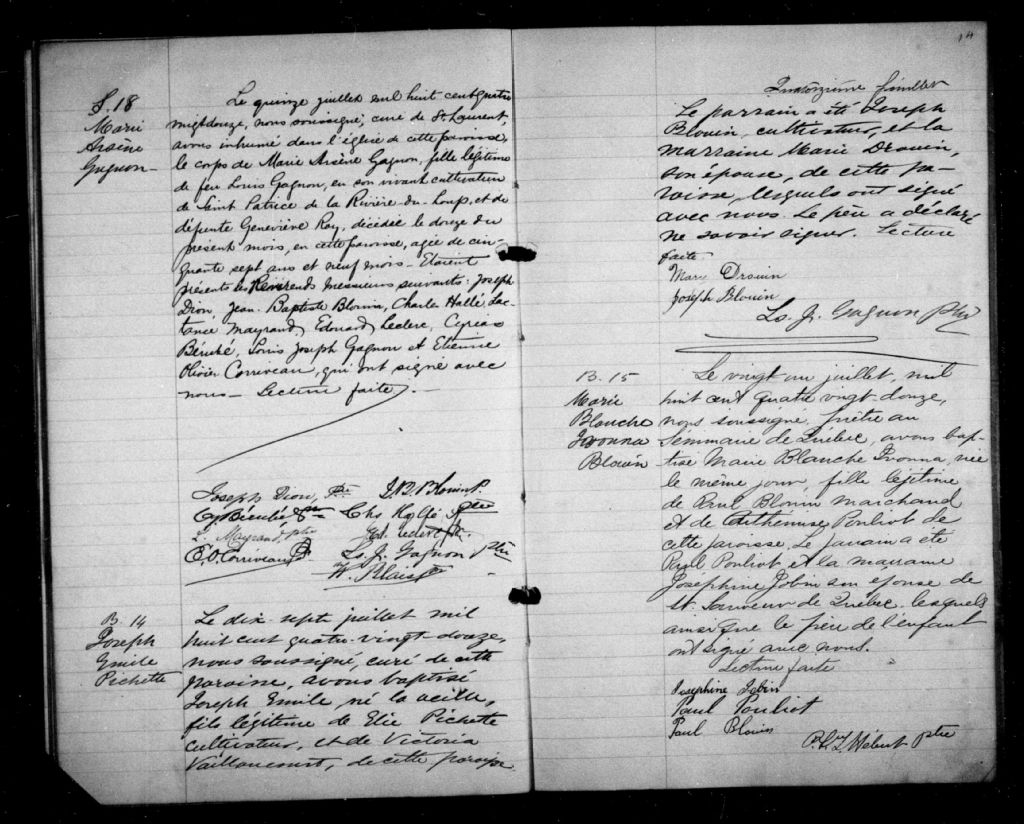 S. 18
Marie
Arsène
Gagnon
Le quinze juillet mil huit cent quatre
vingt douze, nous soussigné, curé de St Laurent,
avons inhumé dans l'église de cette paroisse,
le corps de Marie Arsène Gagnon, fille légitime
de feu Louis Gagnon, en son vivant cultivateur
de Saint Patrice de la Rivière-du-Loup, et de
défunte Geneviève Roy, décédée le douze du
présent mois, en cette paroisse, agée de cin-
quante sept ans et neuf mois. Etaient
présents les Révérends messieurs suivants: Joseph
Dion, Jean-Baptiste Blouin, Charles Hallé, Lac-
tance Mayrand, Edouard Leclerc, Cyrias
Bérubé, Louis Joseph Gagnon et Etienne
Olivier Corriveau, qui ont signé avec
nous. Lecture faite.
Joseph Dion, Ptr J.B. Blouin P.
Cy Bérubé Ptre Chs Hallé Ptre
L. Mayrand, ptre Ed. Leclerc Ptr.
E.O. Corriveau Ptr Ls. J. Gagnon Ptre
W. Blais
B. 14
Joseph
Emile
Pichette
Le dix-sept juillet mil
huit cent quatre-vingt douze,
nous soussigné, curé de cette
paroisse, avons baptisé
Joseph Emile né la veille,
fils légitime de Elie Pichette
cultivateur, et de Victoria
Vaillancourt, de cette paroisse.
14
Quatorzième feuillet
Le parrain a été Joseph
Blouin, cultivateur, et la
marraine Marie Drouin,
son épouse, de cette pa-
roisse, lesquels ont signé
avec nous. Le père a déclaré
ne savoir signer. Lecture
faite
Mary Drouin
Joseph Blouin
Ls. J. Gagnon Ptre
B. 15
Marie
Blanche
Ivonna
Blouin
Le vingt un juillet, mil
huit cent quatre vingt-douze,
nous soussigné, prêtre au
Séminaire de Québec, avons bap-
tisé Marie Blanche Ivonna, née
le même jour, fille légitime
de Paul Blouin marchand
et de Arthémise Pouliot de
cette paroisse. Le parrain a été
Paul Pouliot et la marraine
Joséphine Jobin son épouse de
St. Sauveur de Québec. lesquels
ainsi que le père de l'enfant
ont signé avec nous.
Lecture faite
Josephine Jobin
Paul Pouliot
Paul Blouin
ptre